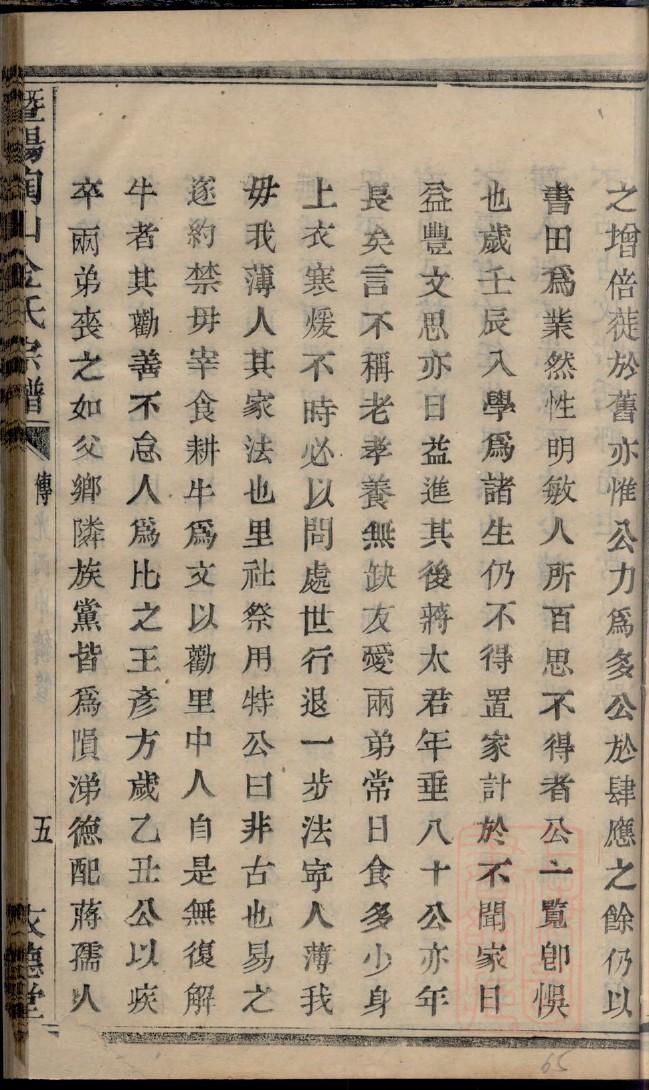 之增倍蓰於舊亦惟公力爲多公於肆應之餘仍以
書田爲業然性明敏人所百思不得者公一覽卽悞
也歲壬辰入學爲諸生仍不得置家計於不聞家日
益豐文思亦日益進其後蔣太君年垂八十公亦年
長矣言不稱老孝養無缺友愛兩弟常日食多少身
上衣寒煖不時必以問處世行退一步法寧人薄我
毋我薄人其家法也里社祭用特公曰非古也易之
遂約禁毋宰食耕牛爲文以勸里中人自是無復解
牛者其勸善不怠人爲比之王彥方歲乙丑公以疾
卒兩弟喪之如父鄉隣族黨皆爲隕涕德配蔣孺人
暨陽陶山金氏宗譜
傳
五
友德堂
65